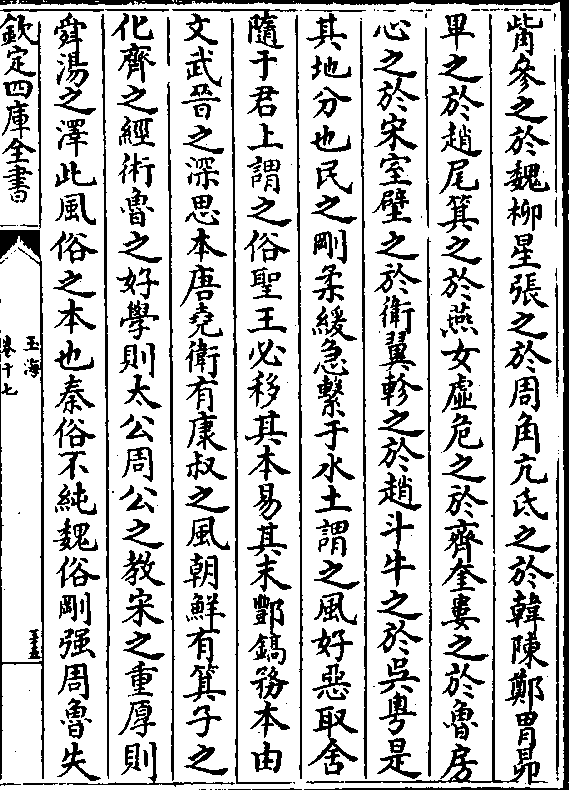 觜參之於魏柳星張之於周角亢氐之於韓陳鄭胃昴
畢之於趙尾箕之於燕女虛危之於齊奎婁之於魯房
心之於宋室壁之於衛翼軫之於趙斗牛之於吳粤是
其地分也民之剛柔緩急繫于水土謂之風好惡取舍
隨于君上謂之俗聖王必移其本易其末酆鎬務本由
文武晉之深思本唐堯衛有康叔之風朝鮮有箕子之
化齊之經術魯之好學則太公周公之教宋之重厚則
舜湯之澤此風俗之本也秦俗不純魏俗剛强周魯失
欽定四庫全書
玉海
卷十七